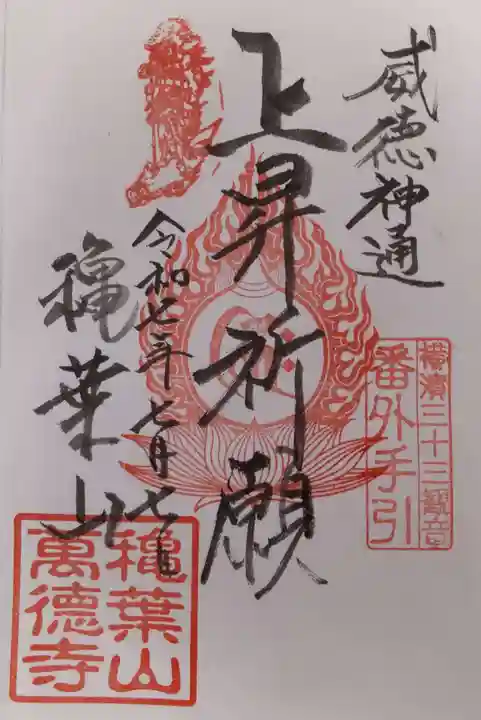 威徳神通
横濱三十三観音
番外手引
上昇祈願
令和七年七月七日
龝葉山
龝葉山
萬徳寺